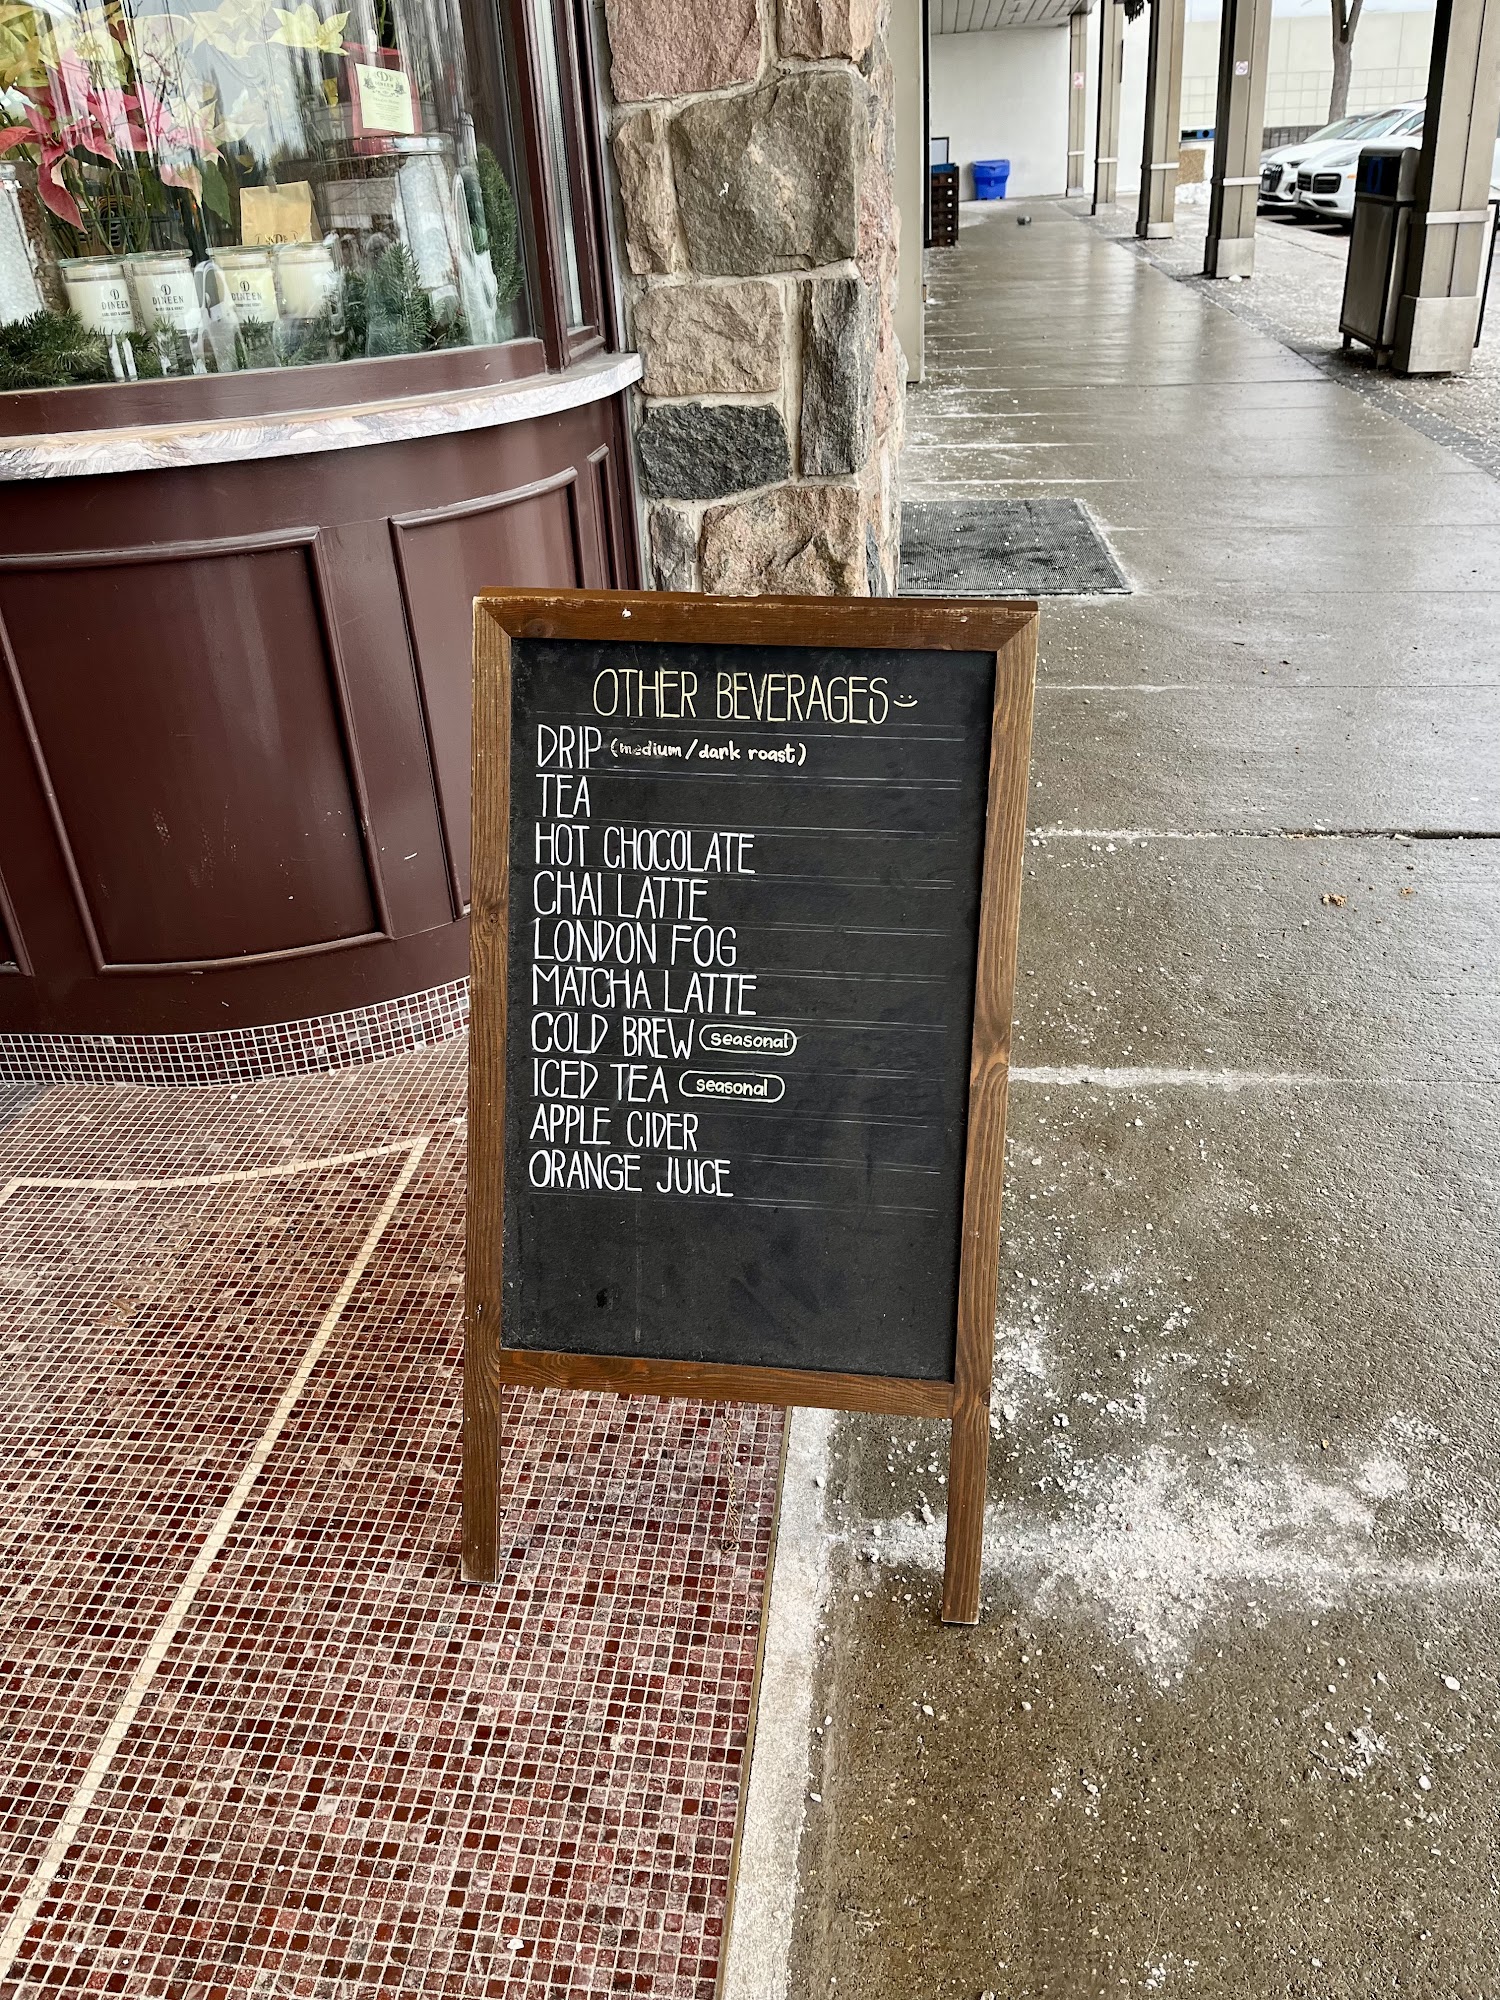 D
DINEEN
D
DINEEN
DINEEN
OTHER BEVERAGES
DRIP (medium/dark roast)
TEA
HOT CHOCOLATE
CHAI LATTE
LONDON FOG
MATCHA LATTE
COLD BREW seasonal
ICED TEA seasonal
APPLE CIDER
ORANGE JUICE